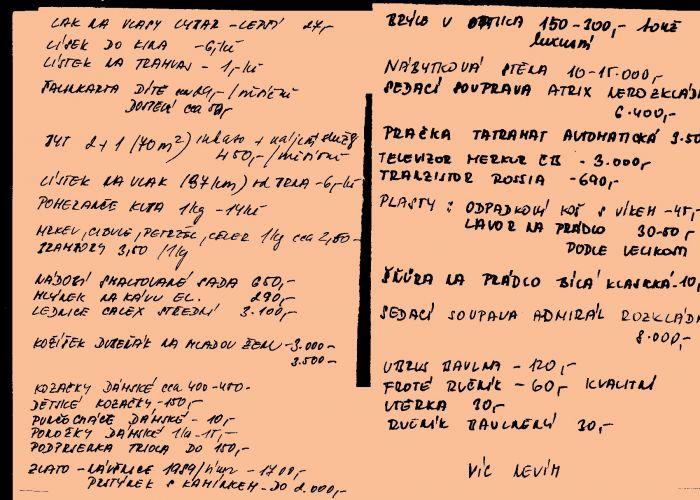 LAK NA VLASY - LETNÍ 27,-
LÍSEK DO KINA - 6,- Kčs
LÍSTEK NA TRAMVAJ - 1,- Kčs
DÍTĚ cca 29,- / měsíční
DOSPĚLÍ cca 59,-
BYT 2+1 (70 m²) inkaso +
450,- / měsíčně
LÍSTEK NA VLAK (97 km) - 6,- Kčs
POMERANČE KUBA 1kg - 14 Kčs
MRKEV, CIBULE, PETRŽEL, CELER 1kg cca 2,50-
BRAMBORY 3,50 / 1kg
NÁDOBÍ SMALTOVANÉ SADA 650,-
MLÝNEK NA KÁVU EL. 290,-
LEDNICE CALEX STŘEDNÍ 3.100,-
KOŽÍŠEK DUBEŇÁK NA MLADOU ŽENU - 3.000-
3.500-
KOZAČKY DÁMSKÉ cca 400-450-
DĚTSKÉ KOZAČKY - 150,-
PUNČOCHÁČE DÁMSKÉ - 10,-
PONOŽKY DÁMSKÉ 14-15,-
PODPRSENKA TRIOLA DO 150,-
ZLATO - NÁUŠNICE 1989 - 1700,-
PRSTÝNEK S KAMÍNKEM - DO 2.000,-
BRÝLE V OPTICE 150-300,-
luxusní
NÁBYTKOVÁ STĚNA 10-15.000,-
SEDACÍ SOUPRAVA ATRIX NEROZKLÁD
6.400,-
PRAČKA TATRAMAT AUTOMATICKÁ 3.50
TELEVIZOR MERKUR ČB - 3.000,-
TRANZISTOR ROSSIA - 690,-
PLASTY: ODPADKOVÝ KOŠ S VÍKEM - 45,-
LAVOR NA PRÁDLO 30-50,-
PODLE VELIKOSTI
ŠŇŮRA NA PRÁDLO BÍLÁ KLASICKÁ - 10,
SEDACÍ SOUPAVA ADMIRÁL ROZKLÁD
8.000,-
UBRUS BAVLNA - 120,-
FROTÉ RUČNÍK - 60,- KVALITNÍ
UTĚRKA 20,-
RUČNÍK BAVLNĚNÝ 30,-
VÍC NEVÍM